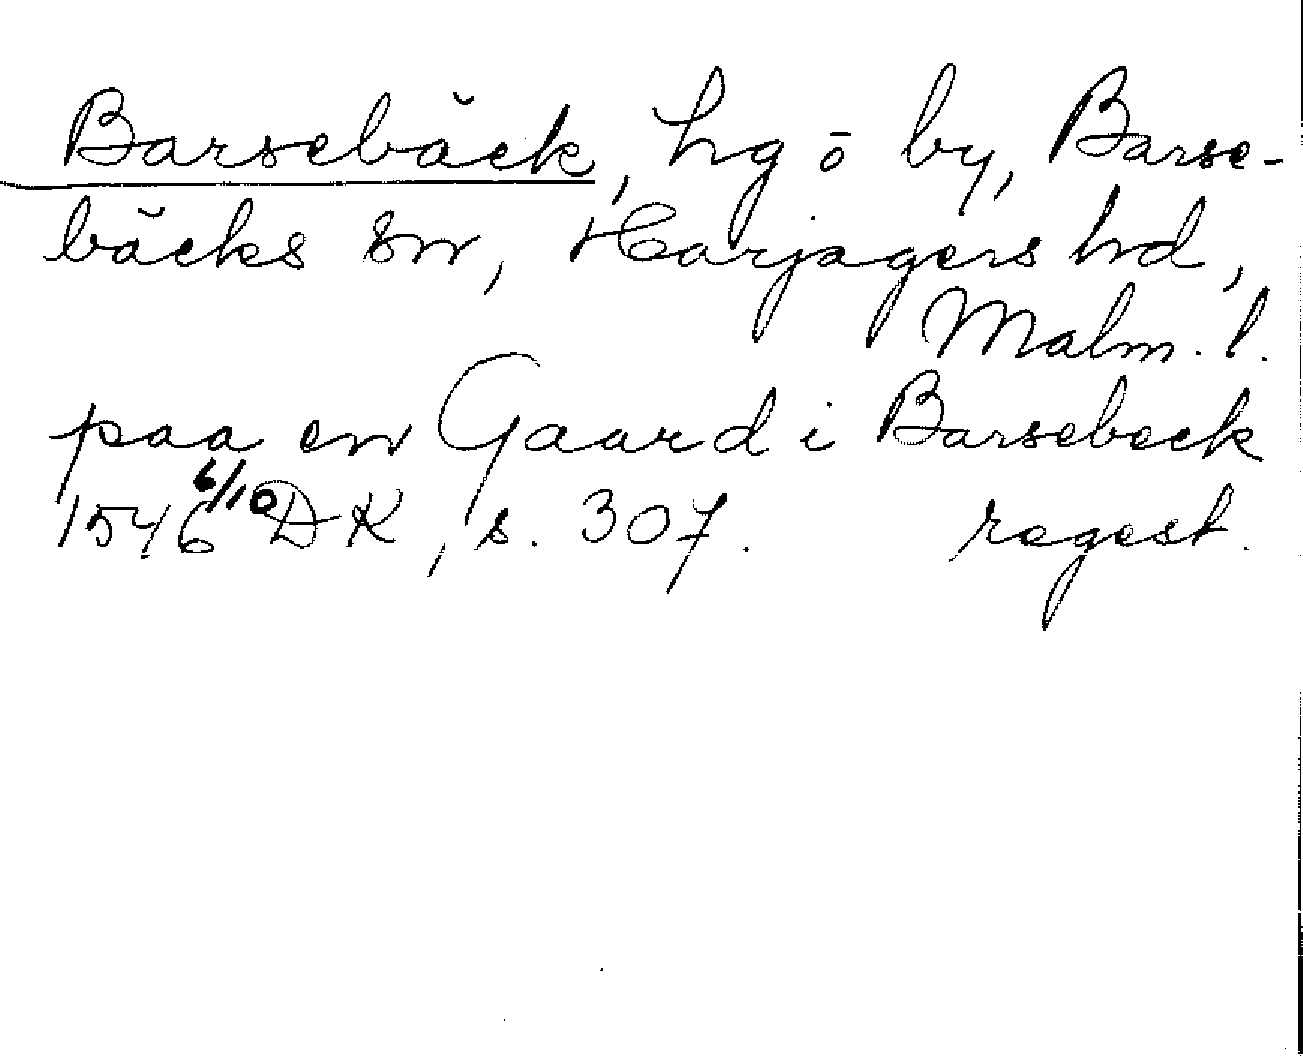 Barsebäck, hg ō by, Barse-
bäcks sn, Harjagers hd,
Malm. l.
paa en Gaard i Barsebeck
1546 6/10 DK, s. 307. regest.